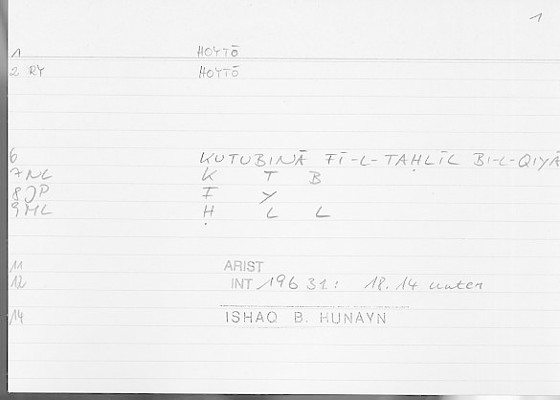 1
1 HOYTŌ
2 RY HOYTŌ
6 KUTUBINĀ FĪ-L-TAḤLĪL BI-L-QIYĀ
7 NL K T B
8 JP F Y
9 ML Ḥ L L
11 ARIST
12 INT 196 31: 18.14 unten
14 ISHAQ B. HUNAYN